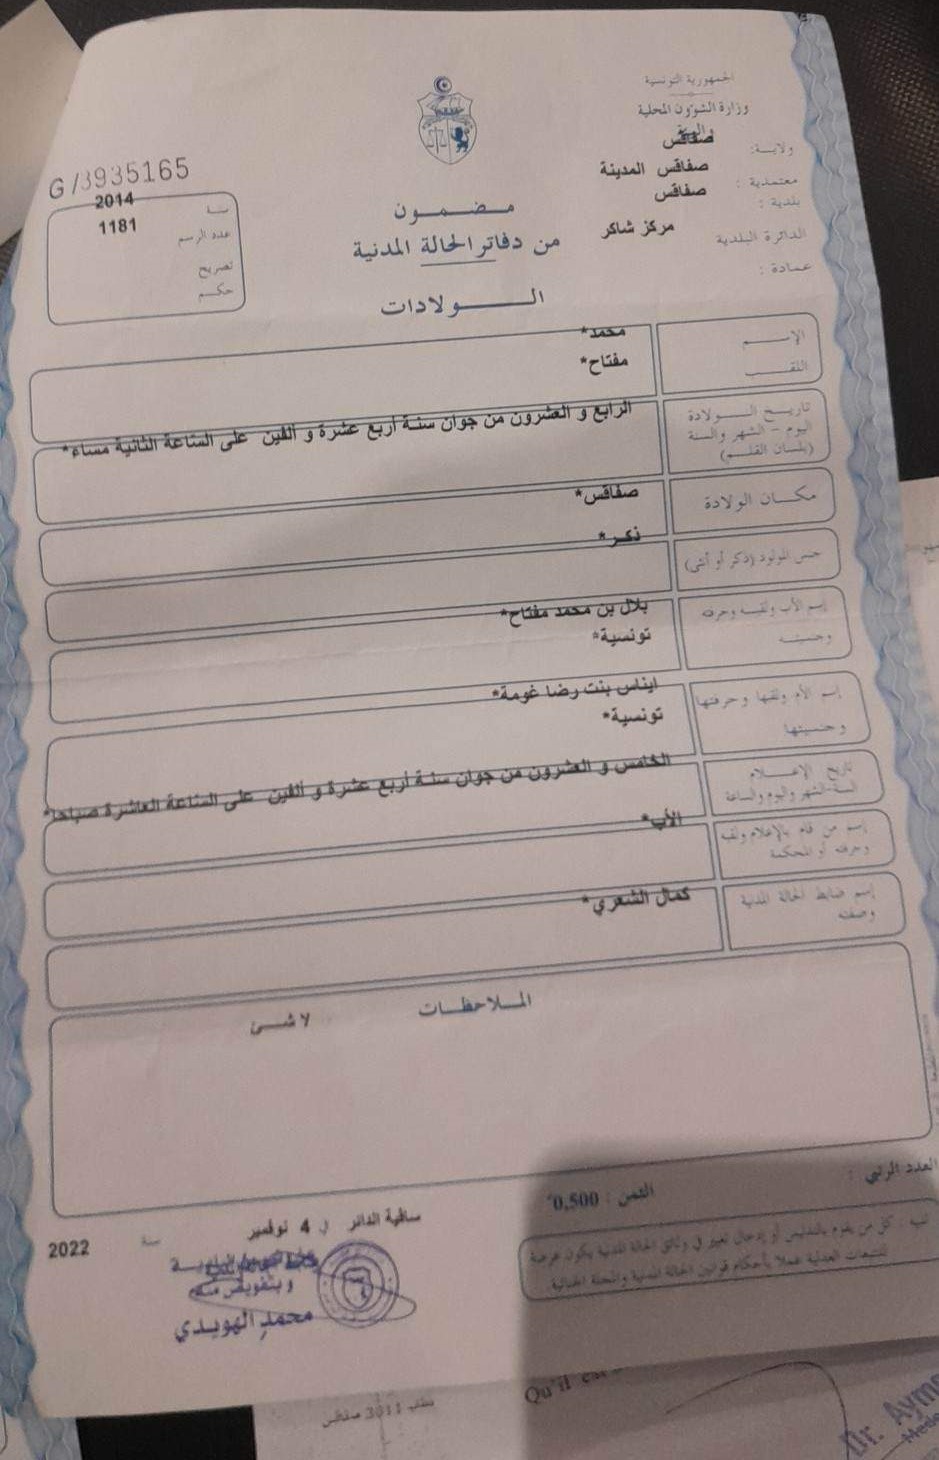 الجمهورية التونسية
وزارة الشؤون المحلية
ولاية: صفاقس
معتمدية : صفاقس المدينة
بلدية : صفاقس
الدائرة البلدية مركز شاكر
عمادة :
G/3935165
سنة 2014
عدد الرسم 1181
تصريح
حكم
مضمون
من دفاتر الحالة المدنية
الولادات
الإسم محمد*
اللقب مفتاح*
تاريخ الولادة
اليوم - الشهر والسنة
(بلسان القلم)
الرابع و العشرون من جوان سنة أربع عشرة و ألفين على الساعة الثانية مساء*
مكان الولادة صفاقس*
جنس المولود (ذكر أو أنثى) ذكر*
إسم الأب ولقبه وحرفته بلال بن محمد مفتاح*
وجنسيته تونسية*
إسم الأم ولقبها وحرفتها ايناس بنت رضا غومة*
وجنسيتها تونسية*
تاريخ الإعلام
السنة-الشهر واليوم والساعة
الخامس و العشرون من جوان سنة أربع عشرة و ألفين على الساعة العاشرة صباحا*
إسم من قام بالإعلام ولقبه الأب*
وحرفته أو المحكمة
إسم ضابط الحالة المدنية كمال الشعري*
وصفته
الملاحظات
لا شئ
العدد الرتبي :
الثمن : 0,500
تنبيه : كل من يقوم بالتدليس أو إدخال تغيير في وثائق الحالة المدنية يكون عرضة
للتتبعات العدلية عملا بأحكام قوانين الحالة المدنية والمجلة الجنائية.
ساقية الدائر في 4 نوفمبر سنة 2022
وبتفويض منه
محمد الهويدي
Qu'il
Dr. Aym